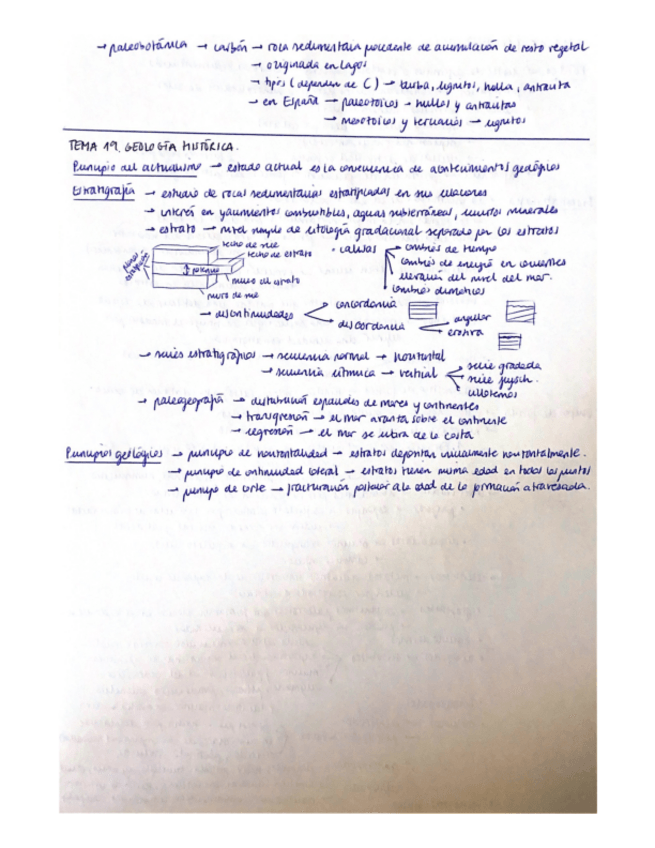 → paleobotánica → carbón → roca sedimentaria procedente de acumulación de resto vegetal
→ originada en lagos
→ tipos (dependen de C) → turba, lignitos, hulla, antracita
→ en España → paleozoicos → hullas y antracitas
→ mesozoicos y terciarios → lignitos
TEMA 19. GEOLOGÍA HISTÓRICA.
Principio del actualismo → estado actual es la consecuencia de acontecimientos geológicos
Estratigrafía → estudio de rocas sedimentarias estratificadas en sus relaciones
→ interés en yacimientos combustibles, aguas subterráneas, minerales
→ estrato → nivel simple de litología gradacional separado por los estratos
techo de serie
techo de estrato
potencia
muro del estrato
muro de serie
planos estratificación
• causas → cambios de tiempo
cambios de energía en corrientes
elevación del nivel del mar.
cambios climáticos
→ discontinuidades
concordancia
discordancia
angular
erosiva
→ series estratigráficas → secuencia normal → horizontal
→ secuencia rítmica → vertical
serie gradada
serie flysch.
ciclotemas
→ paleogeografía → distribución espaciales de mares y continentes
→ transgresión → el mar avanza sobre el continente
→ regresión → el mar se retira de la costa
Principios geológicos → principio de horizontalidad → estratos depositan inicialmente horizontalmente.
→ principio de continuidad lateral → estratos tienen misma edad en todos los puntos
→ principio de corte → fracturación posterior a la edad de la formación atravesada.